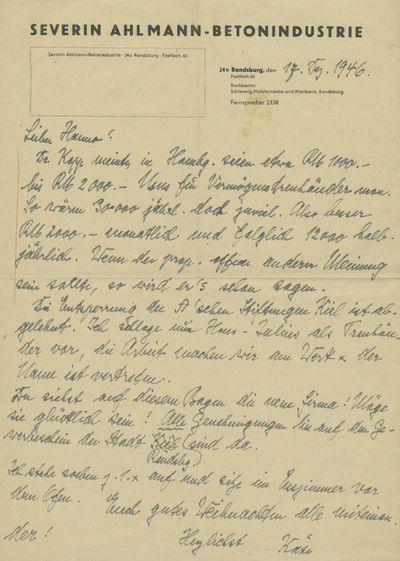 SEVERIN AHLMANN-BETONINDUSTRIE
Severin Ahlmann-Betonindustrie · 24b Rendsburg · Postfach 60
24b Rendsburg, den 17. Dez. 1946.
Postfach 60
Bankkonto:
Schleswig-Holsteinische und Westbank, Rendsburg
Fernsprecher 2330
Lieber Hanno!
Dr. Kapp meinte, in Hambg. seien etwa Rb 1000.-
bis Rb 2000.- Usus für Vermögenstreuhänder mon.
So wären 30000 jährl. doch zuviel. Also besser
Rb 2000.- monatlich und folglich 12000 halb-
jährlich. Wenn der prop. officer anderer Meinung
sein sollte, so wird er's schon sagen.
Die Entsperrung der A'schen Stiftungen Kiel ist ab-
gelehnt. Ich schlage nun Hans-Julius als Treuhän-
der vor, die Arbeit machen wir am Werk & der
Name ist vertreten.
Du siehst auf diesem Bogen die neue Firma! Möge
sie glücklich sein! Alle Genehmigungen bis auf den Ge-
werbeschein der Stadt Kiel sind da.
Rendsbg.
Ich stehe soeben z. 1. x auf und sitze im Esszimmer vor
dem Ofen. Euch gutes Weihnachten alle miteinan-
der!
Herzlichst Käte